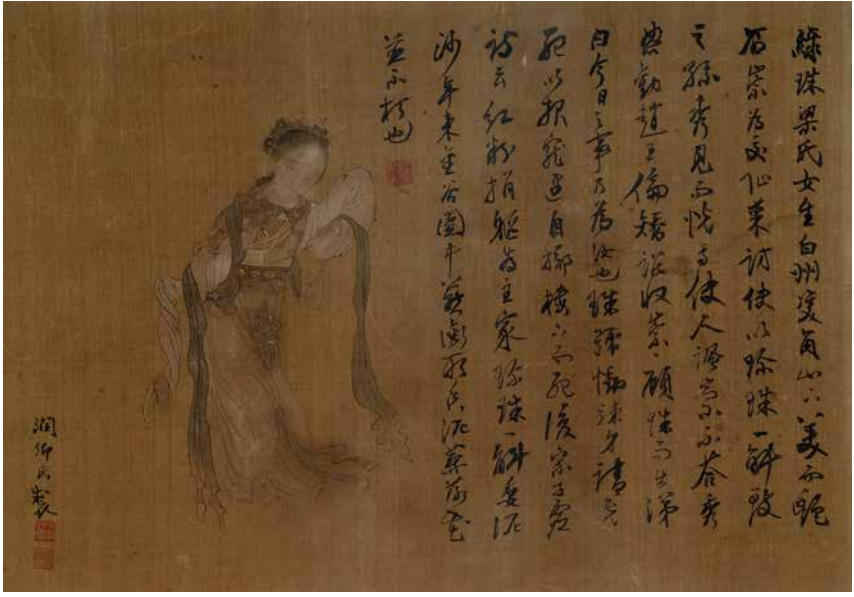 綠珠梁氏女生白州雙角山下美而艷
石崇為交阯采訪使以珍珠一斛致
之孫秀見而悅焉使人謂崇崇不答秀
怒勸趙王倫矯詔收崇崇顧珠而出涕
曰今日之事乃為汝也珠 慟 身請先
死以報寵遇自擲樓下而死後宗子虛
詩云紅粉捐軀為主家珍珠一斛委泥
沙年來金谷園中燕銜取香泥葬落花
並不朽也
潤卿氏製